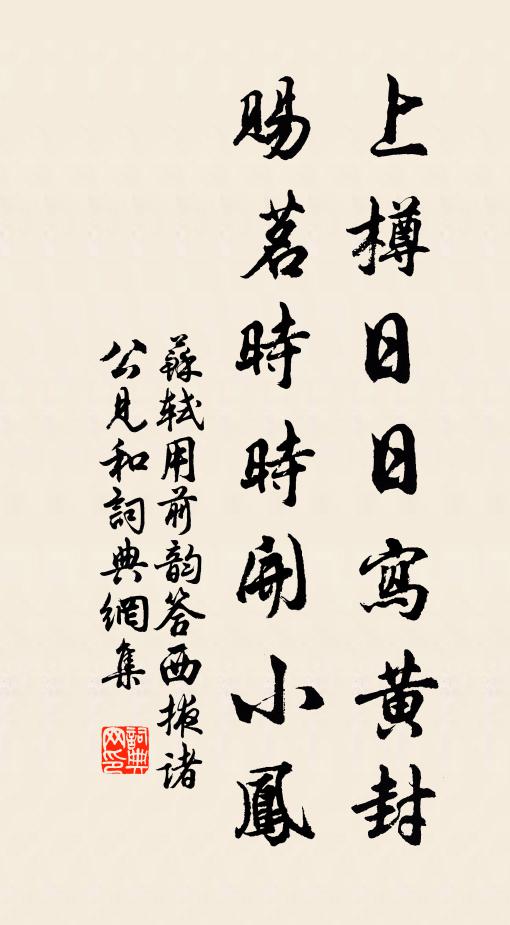 上樽日日寫黃封
賜茗時時開小鳳
蘇軾用前韵答西掖諸
公見和詞典網集
詞典网印